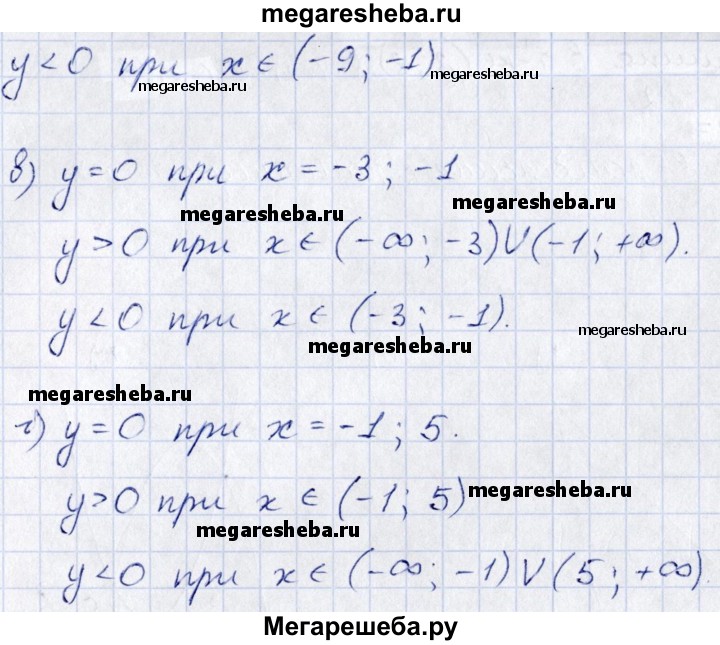 megaresheba.ru
y < 0 при x ∈ (-9; -1)
megaresheba.ru
megaresheba.ru
в) y = 0 при x = -3; -1
megaresheba.ru
megaresheba.ru
y > 0 при x ∈ (-∞; -3) ∪ (-1; +∞).
y < 0 при x ∈ (-3; -1).
megaresheba.ru
megaresheba.ru
megaresheba.ru
г) y = 0 при x = -1; 5.
y > 0 при x ∈ (-1; 5)
megaresheba.ru
megaresheba.ru
y < 0 при x ∈ (-∞; -1) ∪ (5; +∞).
Мегарешеба.ру